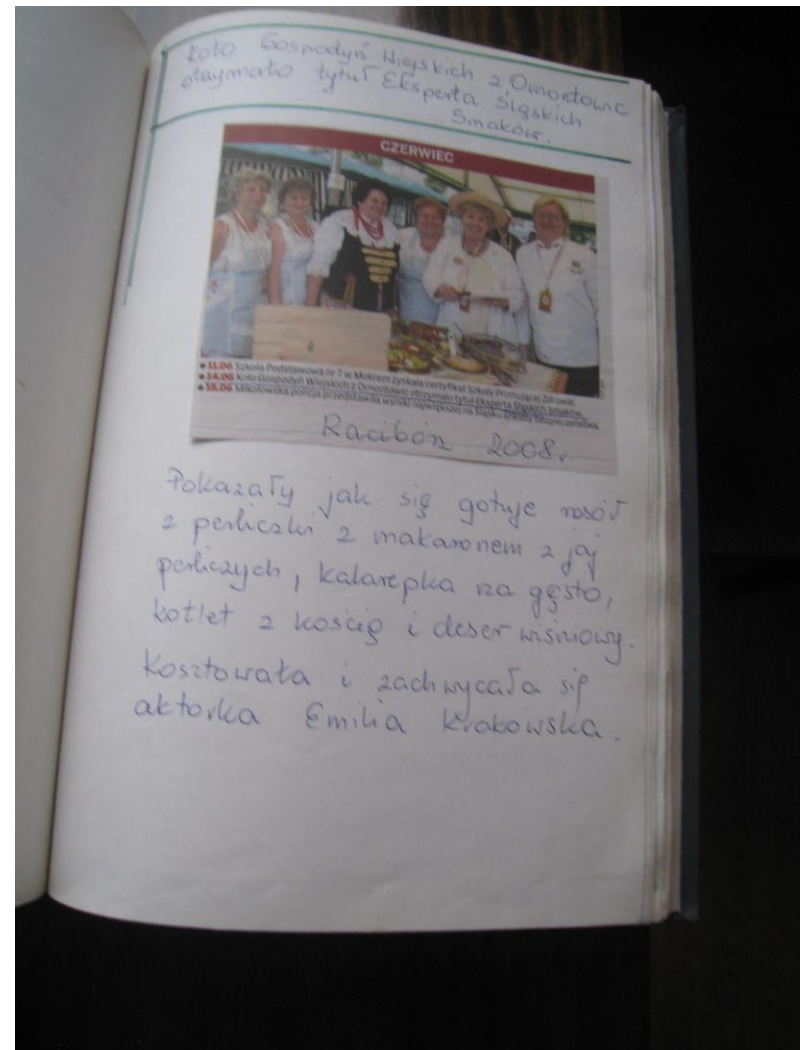 Koło Gospodyń Wiejskich z Ornontowic
otrzymało tytuł Eksperta Śląskich
Smaków.
CZERWIEC
• 11.06 Szkoła Podstawowa nr 7 w Mokrem zyskała certyfikat Szkoły Promującej Zdrowie.
• 14.06 Koło Gospodyń Wiejskich z Ornontowic otrzymało tytuł Eksperta Śląskich Smaków.
• 18.06 Mikołowska policja przedstawiła wyniki największej na Śląsku ankiety bezpieczeństwa.
Racibórz 2008r.
Pokazały jak się gotuje rosół
z perliczki z makaronem z jaj
perliczych, kalarepka na gęsto,
kotlet z kością i deser wiśniowy.
Kosztowała i zachwycała się
aktorka Emilia Krakowska.